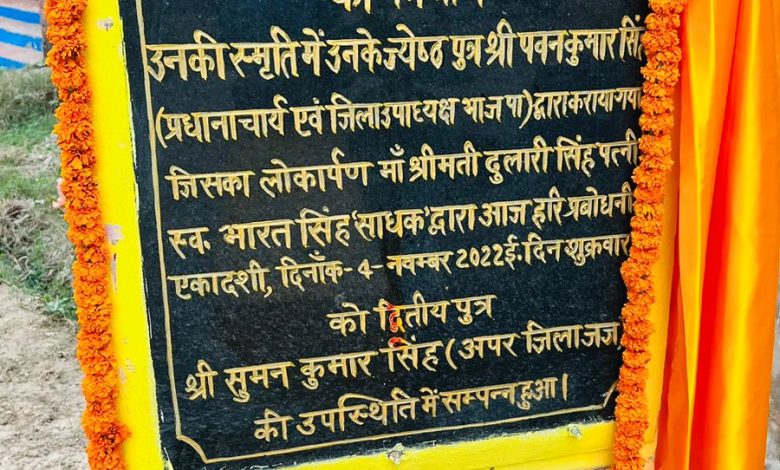 का निर्माण
उनकी स्मृति में उनके ज्येष्ठ पुत्र श्री पवन कुमार सिंह
(प्रधानाचार्य एवं जिला उपाध्यक्ष भाजपा) द्वारा कराया गया
जिसका लोकार्पण माँ श्रीमती दुलारी सिंह पत्नी
स्व. भारत सिंह 'साधक' द्वारा आज हरि प्रबोधनी
एकादशी, दिनाँक - 4 - नवम्बर 2022 ई. दिन शुक्रवार
को द्वितीय पुत्र
श्री सुमन कुमार सिंह (अपर ज़िला जज)
की उपस्थिति में सम्पन्न हुआ।